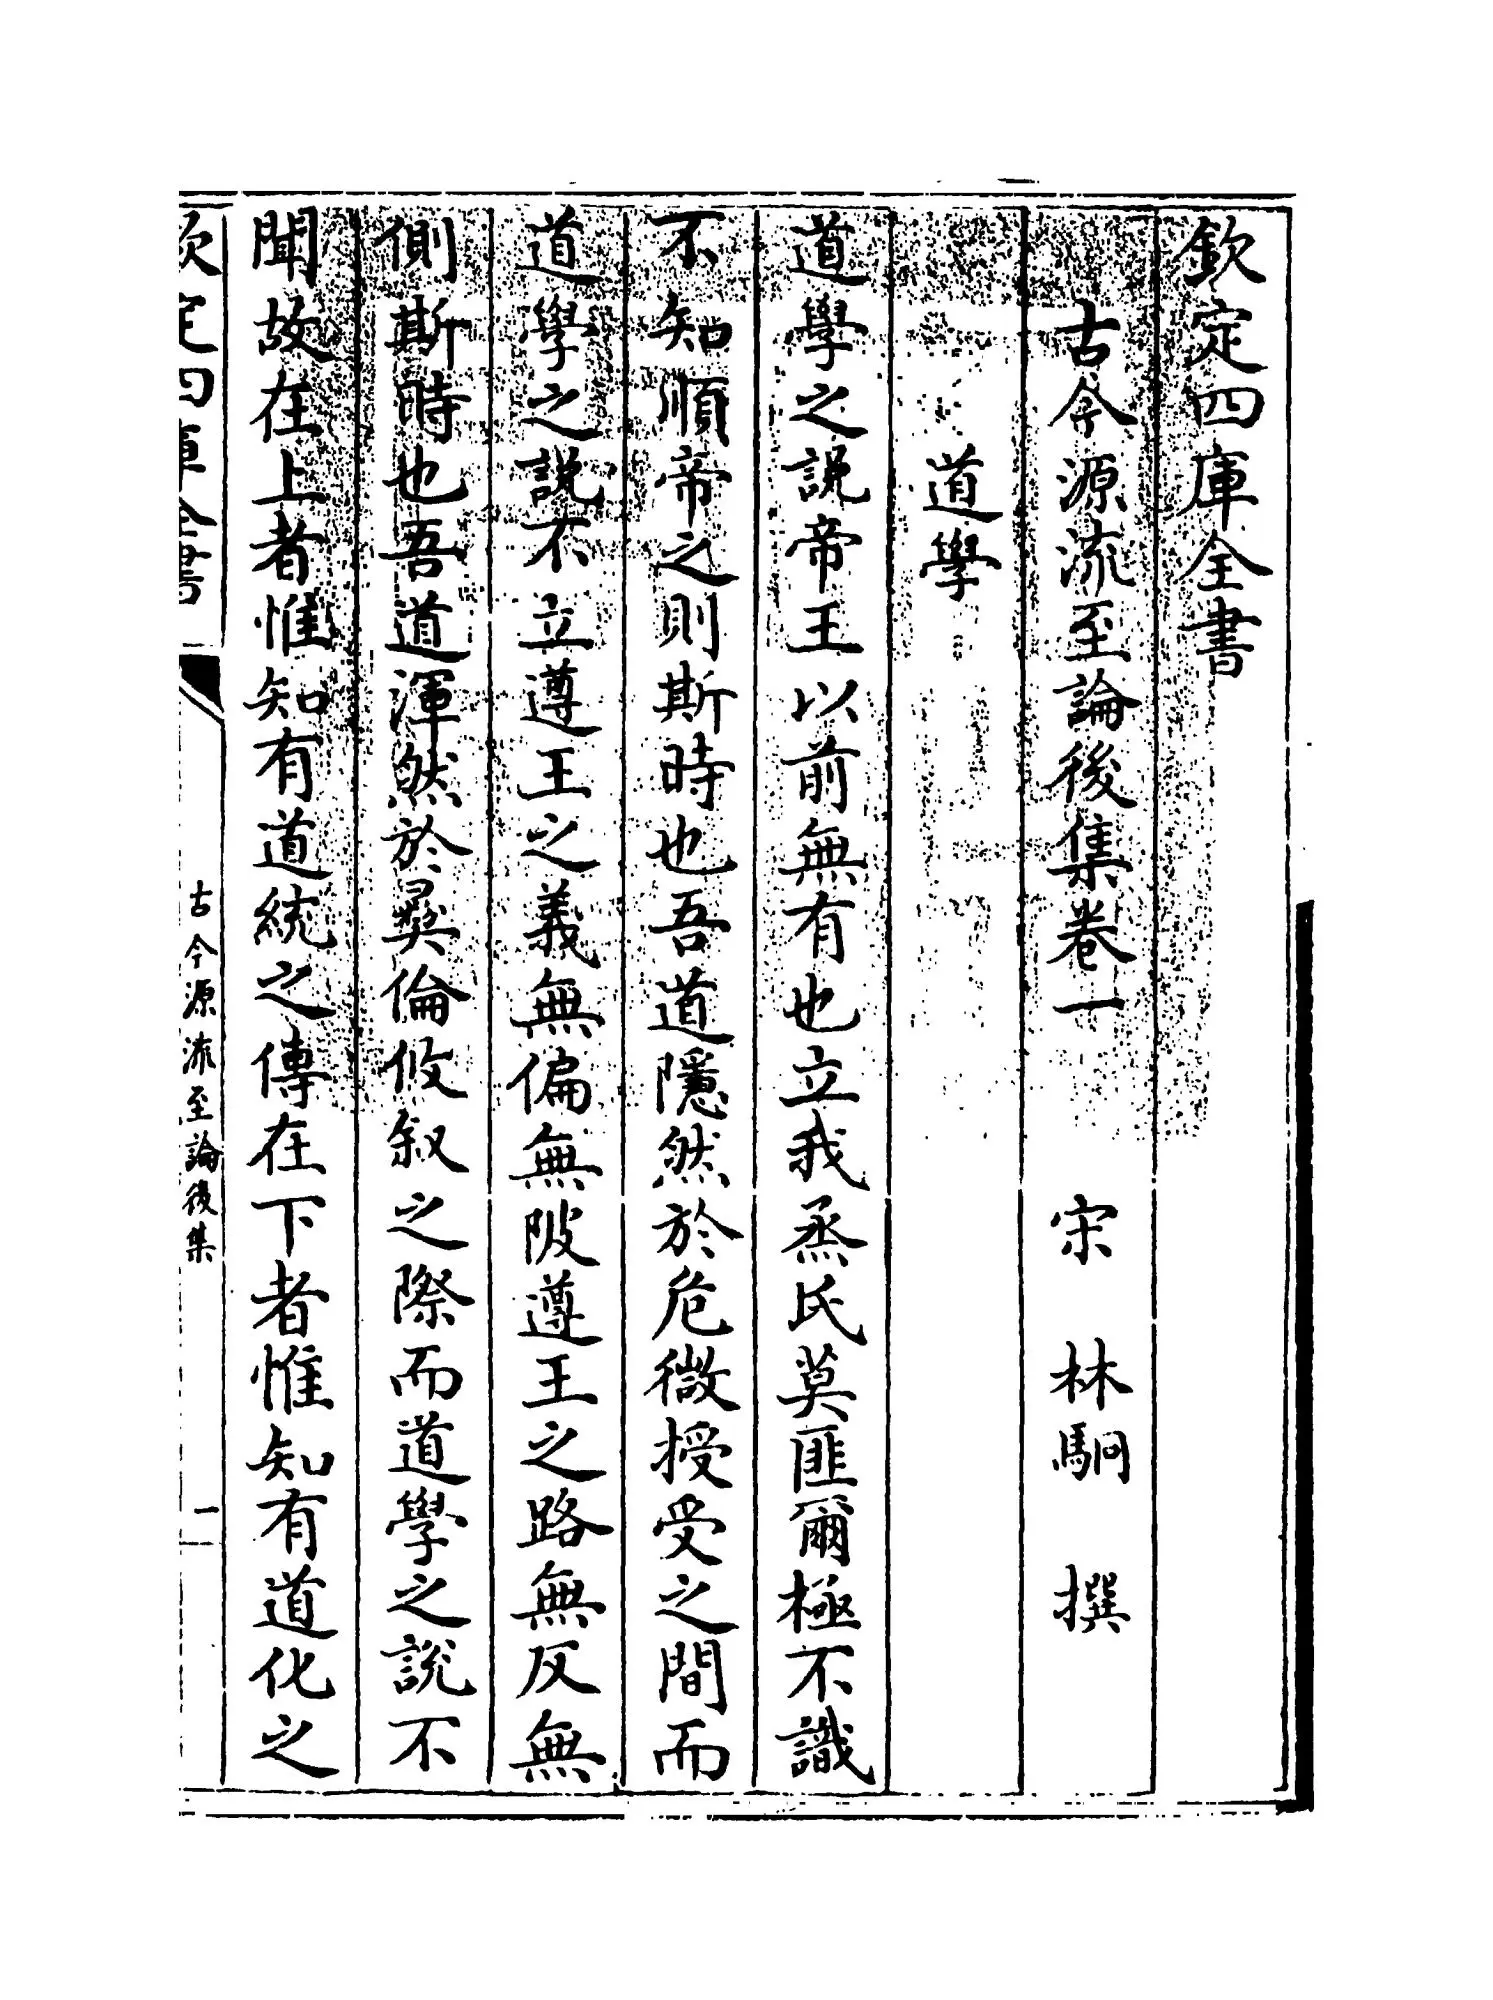 欽定四庫全書
古今源流至論後集卷一 宋 林駉 撰
道學
道學之説帝王以前無有也立我烝民莫匪爾極不識
不知順帝之則斯時也吾道隱然於危微授受之間而
道學之説不立遵王之義無偏無陂遵王之路無反無
側斯時也吾道渾然於彛倫攸叙之際而道學之説不
聞故在上者惟知有道統之傳在下者惟知有道化之
欽定四庫全書
古今源流至論後集
一